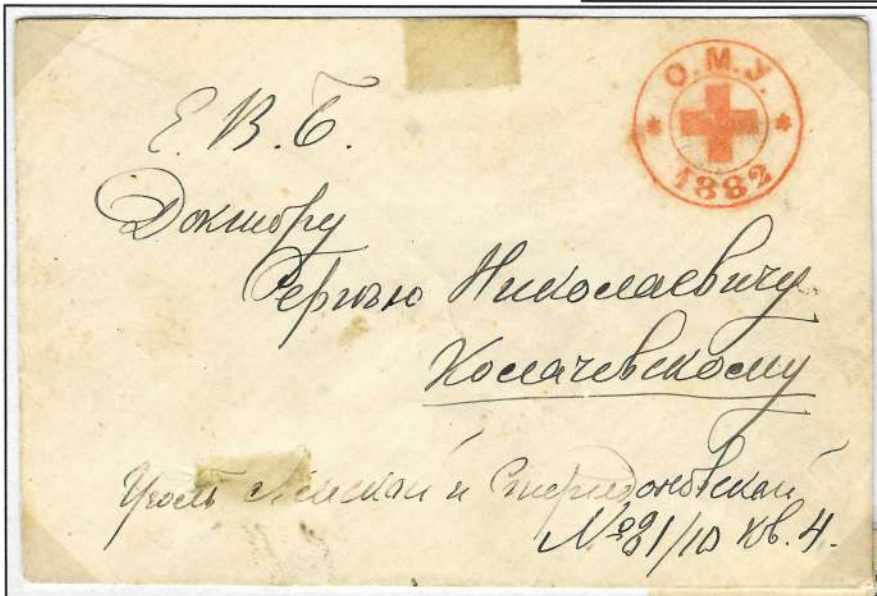 О.М.У.
1882
Е. В. Б.
Доктору
Сергѣю Николаевичу
Колачевскому
Уголъ Ямской и Спиридоновской
№ кв. 4.